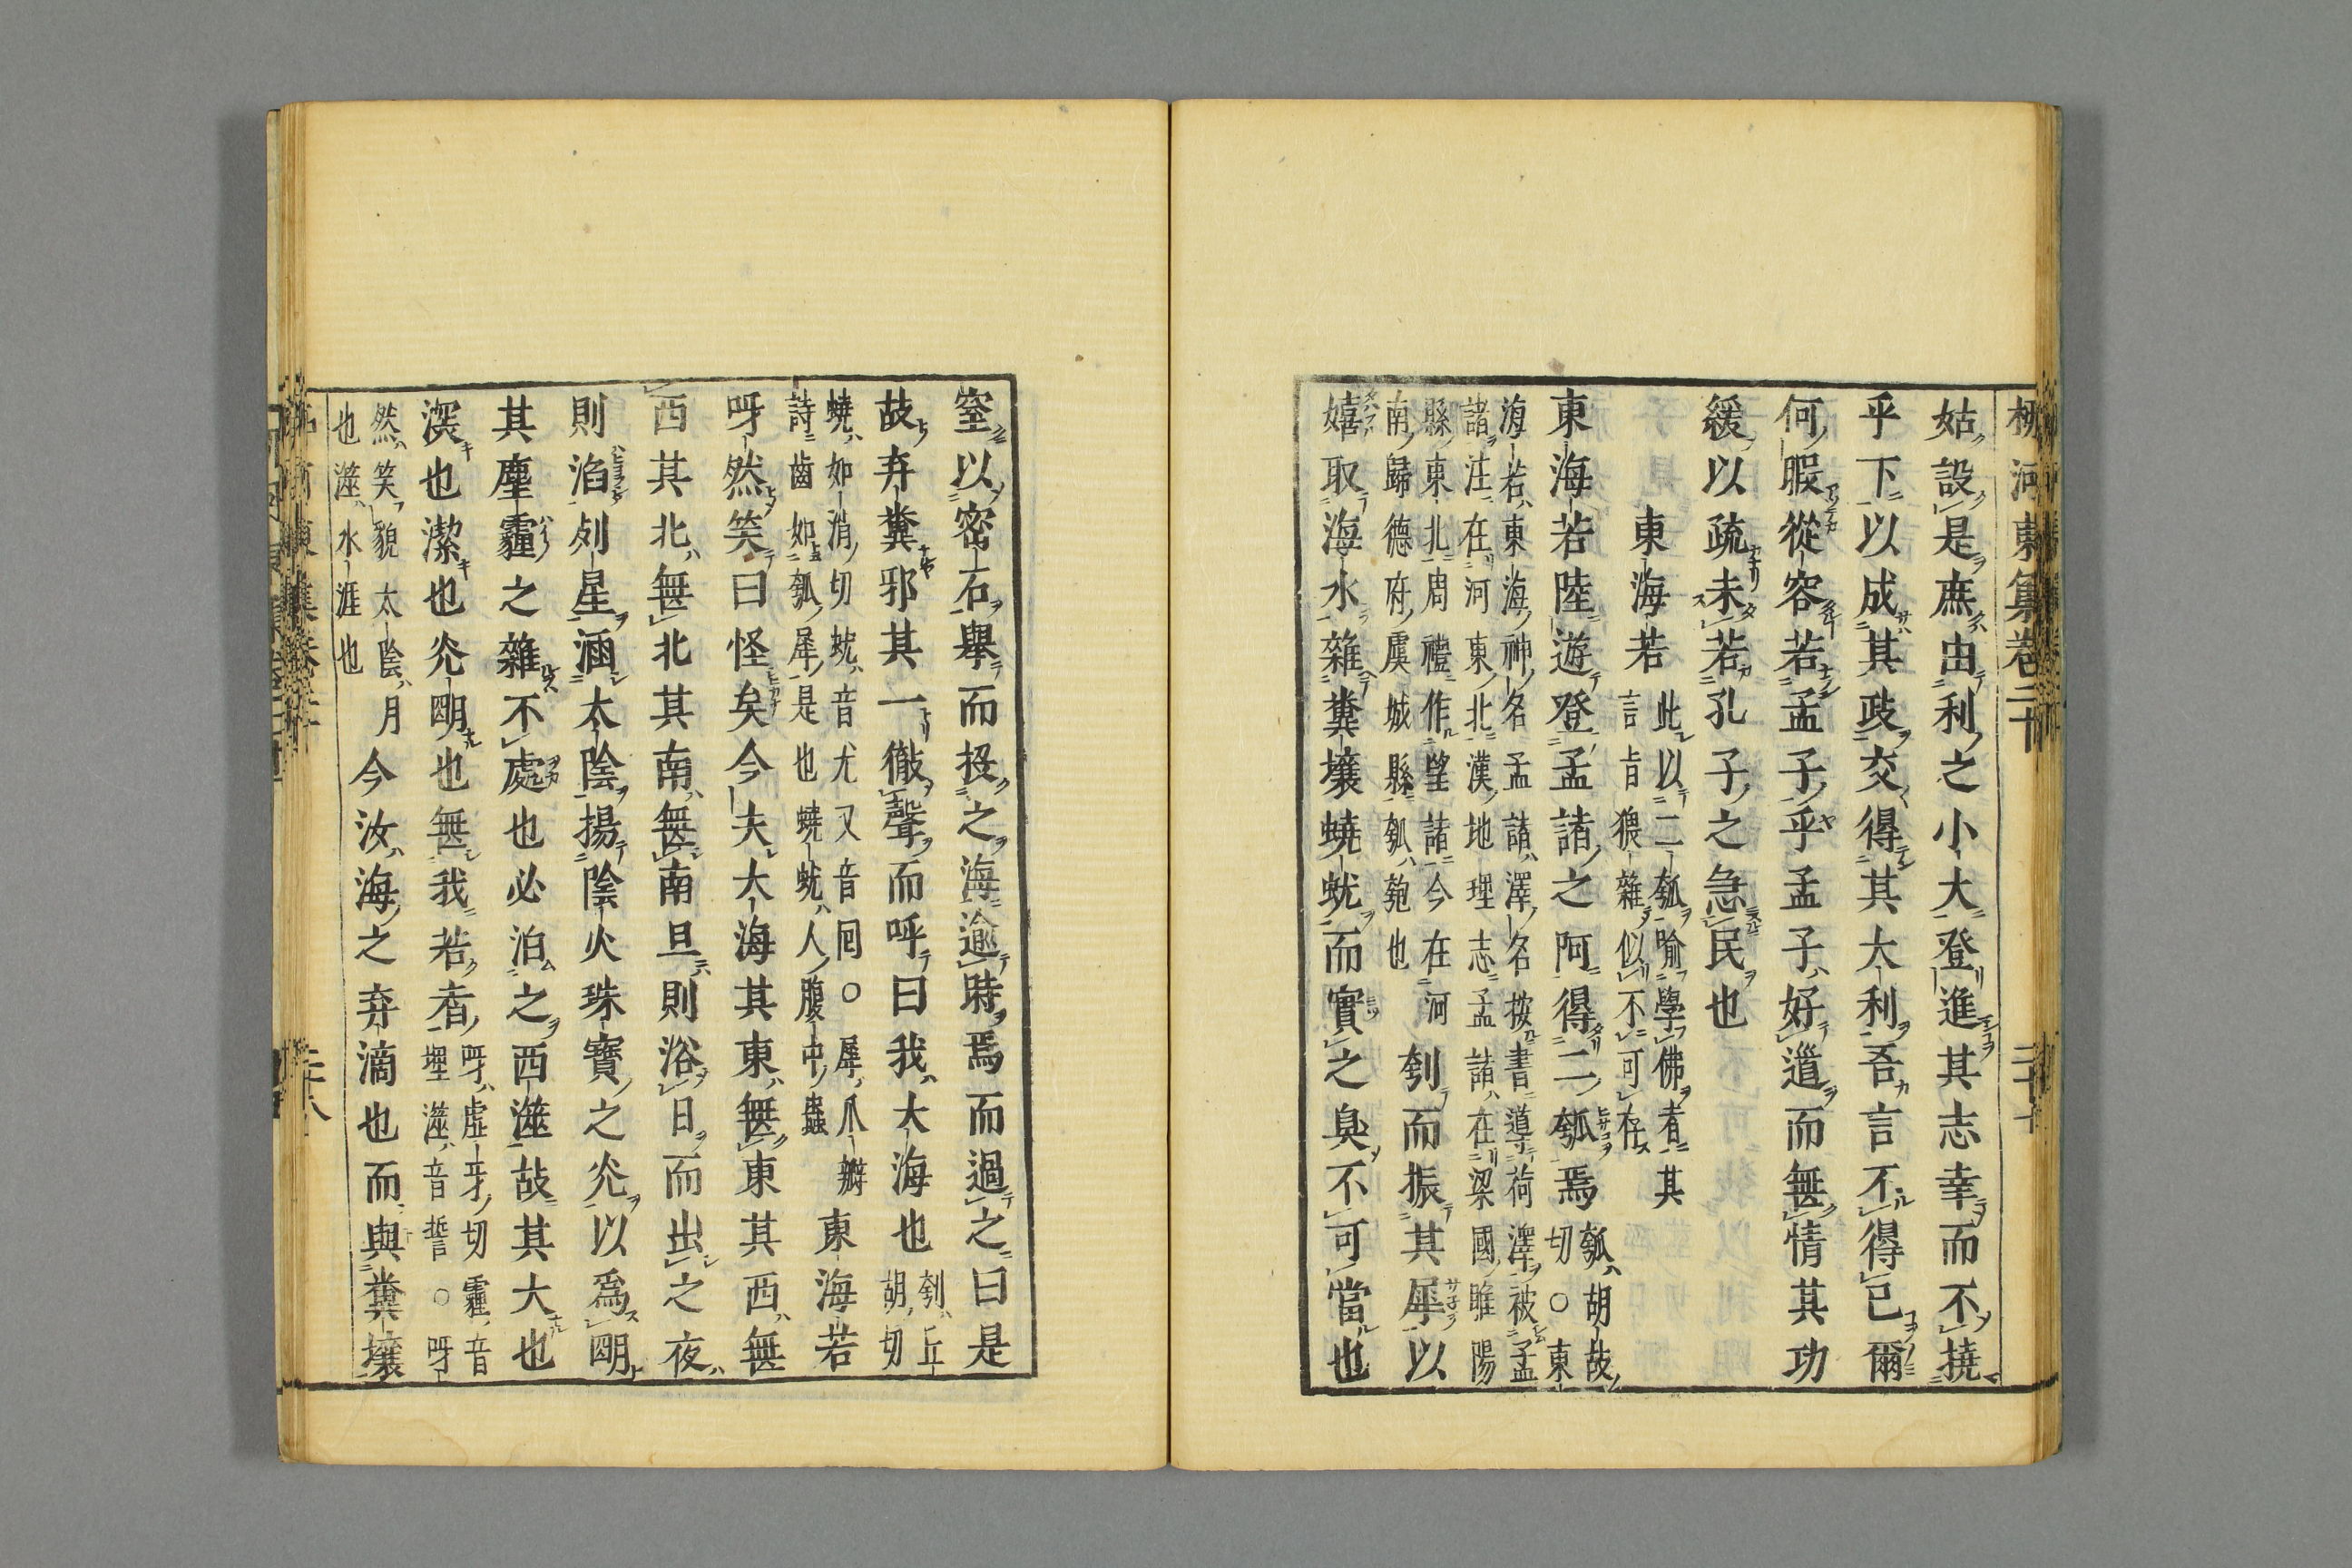 姑設是庶由利之小大登進其志幸而不撓
乎下以成其政交得其大利吾言不得已爾
何暇從容若孟子乎孟子好道而無情其功
緩以疏未若孔子之急民也
東海若
此以二瓠喻學佛者其
言旨猥雜似不可存
東海若陸遊登孟諸之阿得二瓠焉
瓠胡故
切○東
海若東海神名孟諸澤名按書導荷澤被孟
諸注在河東北漢地理志孟諸在梁國睢陽
縣東北周禮作望諸今在河
南歸德府虞城縣瓠匏也
刳而振其犀以
嬉取海水雜糞壤蟯蚘而實之臭不可當也
窒以密石舉而投之海逾時焉而過之曰是
故弃糞邪其一徹聲而呼曰我大海也
刳丘
胡切
蟯如消切蚘音尤又音囘○犀瓜瓣
詩齒如瓠犀是也蟯蚘人腹中蟲
東海若
呀然笑曰怪矣今夫大海其東無東其西無
西其北無北其南無南旦則浴日而出之夜
則滔列星涵太陰揚陰火珠寶之光以爲明
其塵霾之雜不處也必泊之西澨故其大也
深也潔也光明也無我若者
呀虛牙切霾音
埋澨音誓○呀
然笑貌太陰月
也澨水涯也
今汝海之弃滴也而與糞壤